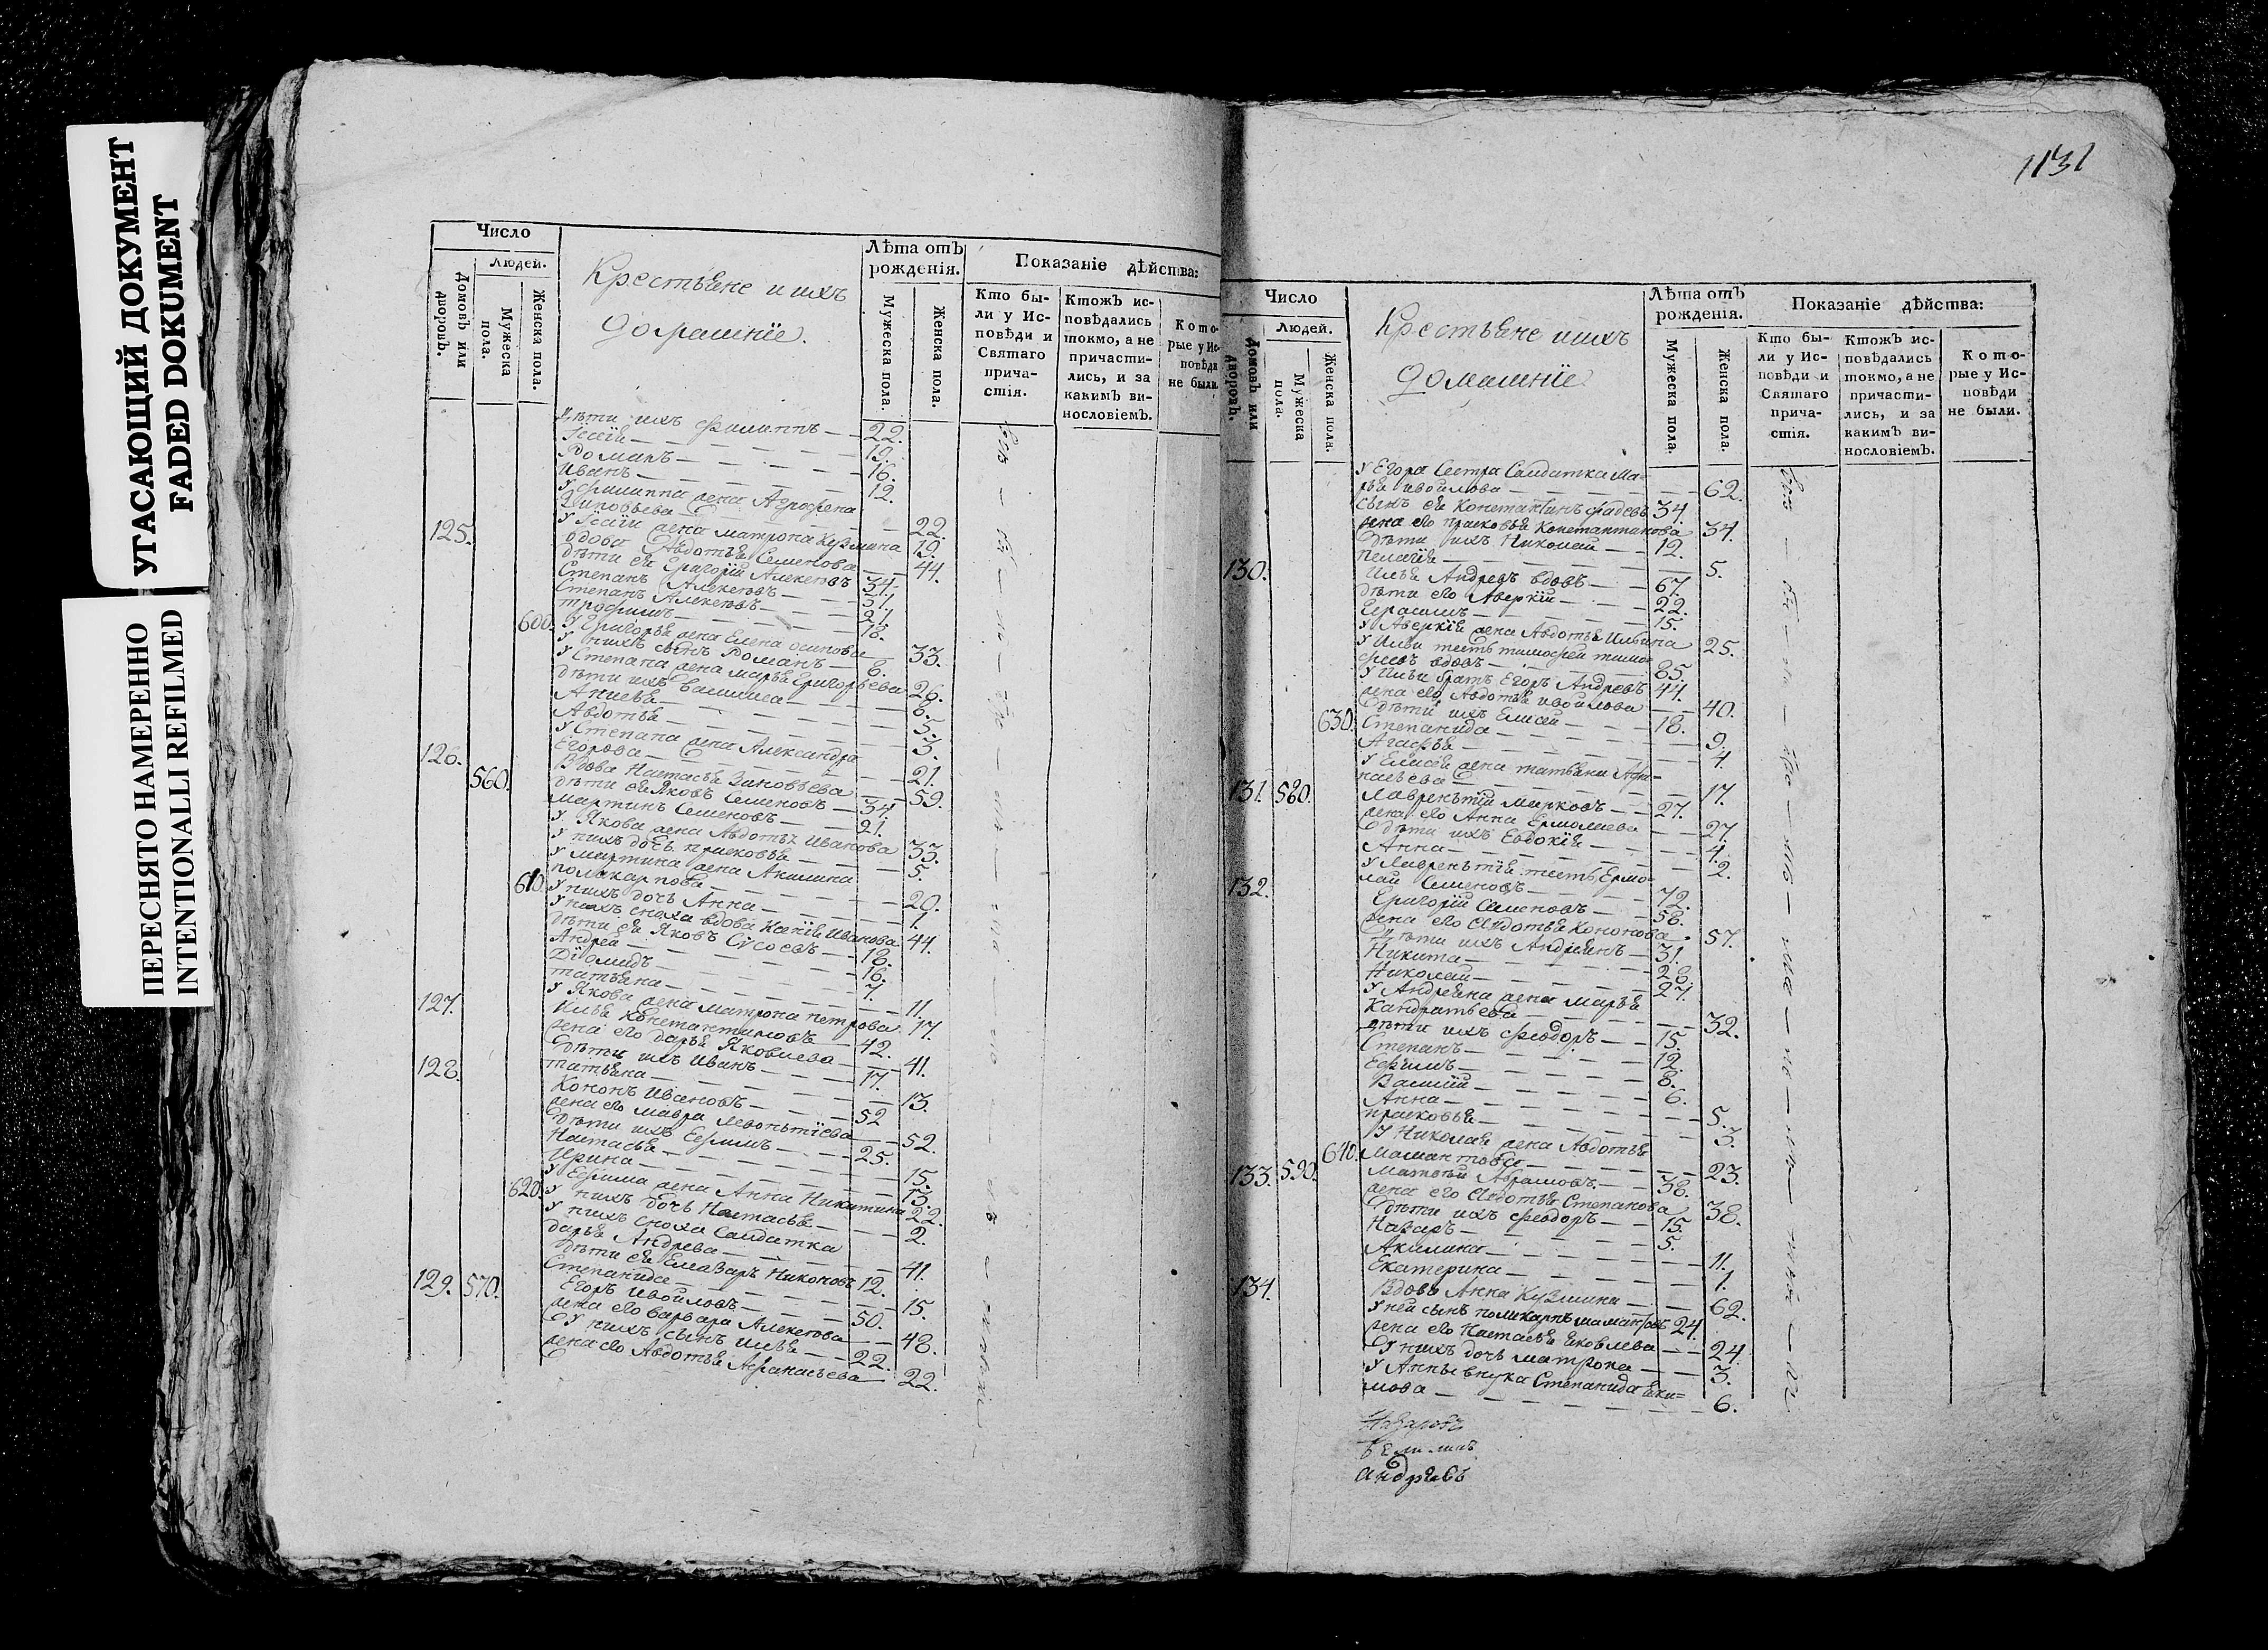 УГАСАЮЩИЙ ДОКУМЕНТ
FADED DOKUMENT
ПЕРЕСНЯТО НАМЕРЕННО
INTENTIONALLI REFILMED
Число
Людей.
Домовъ или дворовъ.
Мужеска пола.
Женска пола.
Крестьяне и ихъ
домашніе.
Лѣта отъ рожденія.
Мужеска пола.
Женска пола.
Показаніе дѣйства:
Кто были у Исповѣди и Святаго причастія.
Ктожъ исповѣдались токмо, а не причастились, и за какимъ винословіемъ.
Которые у Исповѣди не были.
Дѣти ихъ Филиппъ 22.
Ісаій 19.
Романъ 16.
Иванъ 12.
У Филиппа жена Агрофена
Зиновьева 22.
У Ісаіи жена Матрона Кузмина 19.
125. Вдова Авдотья Семенова 44.
Дѣти ея Григорій Алексеевъ 34.
Степанъ Алексеевъ 31.
Степанъ Алексеевъ 21.
Трофимъ 18.
600. У Григорья жена Елена Осипова 33.
У нихъ сынъ Романъ 8.
У Степана жена Марья Григорьева 26.
Дѣти ихъ Василиса 8.
Анисья 5.
Авдотья 3.
У Степана жена Александра
Егорова 21.
126. Вдова Настасья Зиновьева 59.
560. Дѣти ея Яковъ Семеновъ 34.
Мартинъ Семеновъ 21.
У Якова жена Авдотья Иванова 33.
У нихъ дочь Прасковья 5.
У Мартина жена Акилина
Поликарпова 20.
610. У нихъ дочь Анна 1.
У нихъ сноха вдова Ксенія Иванова 44.
Дѣти ея Яковъ Сусоевъ 18.
Андрей 16.
Діомидъ 7.
Татьяна 11.
У Якова жена Матрона Петрова 17.
127. Илья Константиновъ 42.
жена его Дарья Яковлева 41.
Дѣти ихъ Иванъ 17.
Татьяна 13.
128. Кононъ Ивановъ 52
жена его Мавра Левонтіева 52.
Дѣти ихъ Ефимъ 25.
Настасья 15.
Ирина 13.
У Ефима жена Анна Никитина 22.
620. У нихъ дочь Настасья 2.
У нихъ сноха Салдатка
Дарья Андрева 41.
Дѣти ея Елиазаръ Никоновъ 12.
Степанида 15.
129. 570. Егоръ Ивойловъ 50.
жена его Варвара Алексеева 48.
У нихъ сынъ Илья 22.
жена его Авдотья Афанасьева 22.
1131
Число
Людей.
Домовъ или дворовъ.
Мужеска пола.
Женска пола.
Крестьяне и ихъ
домашніе
Лѣта отъ рожденія.
Мужеска пола.
Женска пола.
Показаніе дѣйства:
Кто были у Исповѣди и Святаго причастія.
Ктожъ исповѣдались токмо, а не причастились, и за какимъ винословіемъ.
Которые у Исповѣди не были.
У Егора Сестра Салдатка Ма-
рья Ивойлова 62.
Сынъ ея Константинъ Фадевъ 34.
жена его Прасковья Константинова 34.
Дѣти ихъ Николай 12.
Пелагія 5.
130. Илья Андревъ вдовъ 67.
Дѣти его Аверкій 22.
Герасимъ 15.
У Аверкія жена Авдотья Ильина 25.
У Ильи тесть Тимофей Тимо-
феевъ вдовъ 85.
У Ильи братъ Егоръ Андревъ 44.
жена его Авдотья Ивойлова 40.
Дѣти ихъ Елисей 18.
630. Степанида 9.
Агафья 4.
У Елисея жена Татьяна Афа-
насьева 17.
131. 580. Лаврентій Марковъ 27.
жена его Анна Ермолаева 27.
Дѣти ихъ Евдокія 4.
Анна 2.
У Лаврентія тесть Ермо-
лай Семеновъ 72.
132. Григорій Семеновъ 58.
жена его Авдотья Кононова 57.
Дѣти ихъ Андреянъ 31.
Никита 28.
Николай 27.
У Андреяна жена Марья
Кандратьева 32.
Дѣти ихъ Феодоръ 15.
Степанъ 12.
Ефимъ 8.
Василій 6.
Анна 5.
Прасковья 3.
У Николая жена Авдотья
640. Мамантова 23.
133. 590. Матвей Абрамовъ 38.
жена его Авдотья Степанова 38.
Дѣти ихъ Феодоръ 15.
Назаръ 5.
Акилина 11.
Екатерина 1.
134. Вдова Анна Кузмина 62.
У ней сынъ Поликарпъ Мамантовъ 24.
жена его Настасья Яковлева 24.
У нихъ дочь Матрона 3.
У Анны внука Степанида Яки-
мова 6.
Андрѣевъ